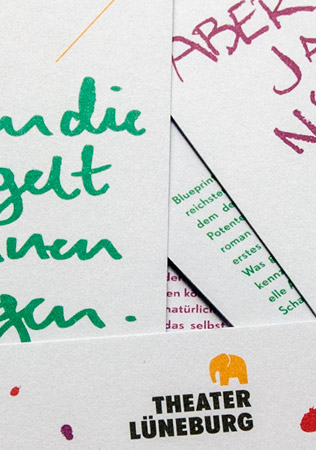 n die
gelt
nen
gen.
ABER
JA
No
Blueprin
reichste
dem de
Potente
roman
erstes
Was
kenn
elle A
Scha
der
en kö
natürlic
das selbst
THEATER
LÜNEBURG